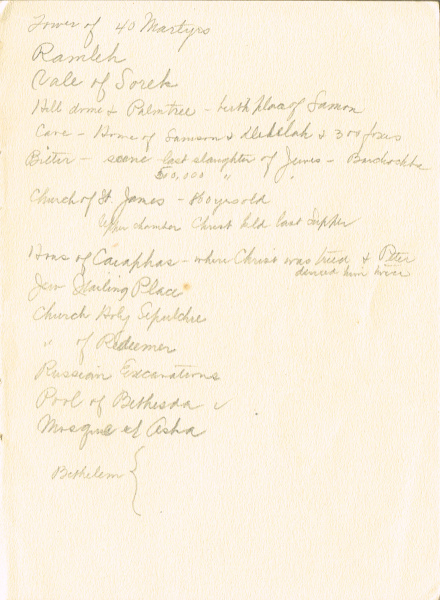 Tower of 40 Martyrs
Ramleh
Vale of Sorek
Hill dome & Palmtree - birth place of Samson
Cave - Home of Samson & Delilah & 300 foxes
Bitter - scene last slaughter of Jews - Barchochba
580,000 " "
Church of St. James - yrs old
Upper chamber Christ held last Supper
Hous of Caiaphas - where Christ was tried & Peter
denied him twice
Jew Wailing Place
Church Holy Sepulchre
" of Redeemer
Russian Excavations
Pool of Bethesda ✓
Mosque of
Bethelem {